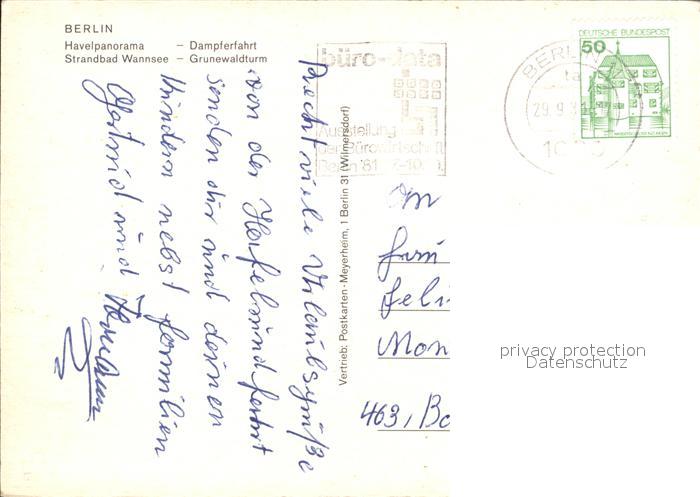 BERLIN
Havelpanorama – Dampferfahrt
Strandbad Wannsee – Grunewaldturm
büro-data
Ausstellung
der Bürowirtschaft
Berlin '81 7-10.
BERLIN
29.9.
DEUTSCHE BUNDESPOST
50
Vertrieb: Postkarten-Meyerheim, 1 Berlin 31 (Wilmersdorf)
Recht viele Urlaubsgrüße
von der Hafelrundfahrt
senden dir und deinen
Kindern nebst Familien
und
An
Feli
Mon
463, Bo
privacy protection
Datenschutz